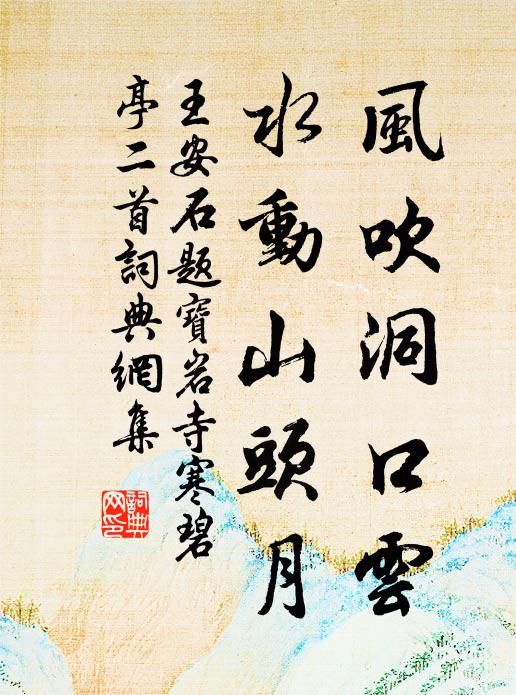 風吹洞口雲
水動山頭月
王安石題寶岩寺寒碧
亭二首詞典網集
詞典
网印